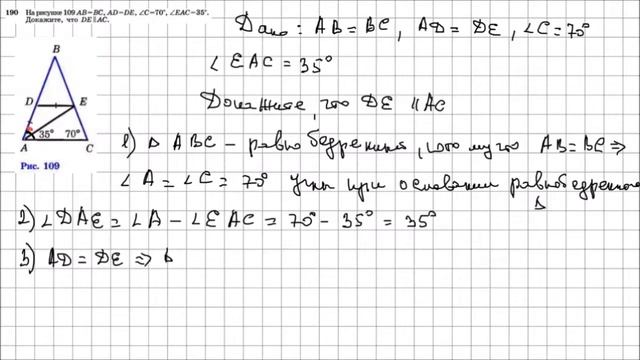 190 На рисунке 109 AB=BC, AD=DE, ∠C=70°, ∠EAC=35°.
Докажите, что DE∥AC.
B
D E
35° 70°
A C
Рис. 109
Дано: AB = BC, AD = DE, ∠C = 70°
∠EAC = 35°
Докажите, что DE ∥ AC
1) △ ABC – равнобедренный, потому что AB = BC ⇒
∠A = ∠C = 70° углы при основании равнобедренного △
2) ∠DAE = ∠A – ∠EAC = 70° – 35° = 35°
3) AD = DE ⇒